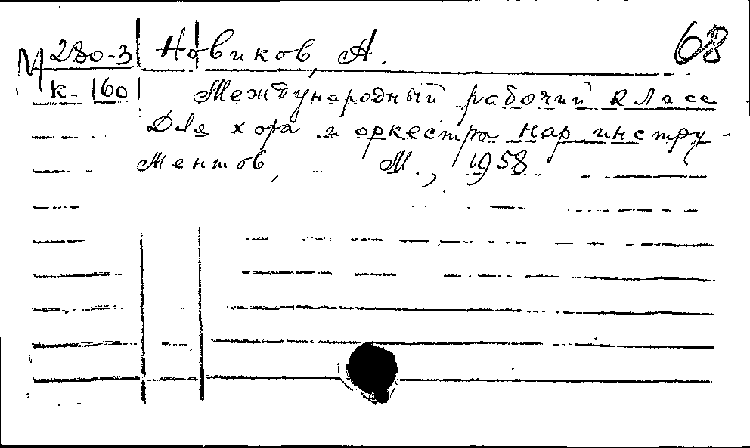 68
М 280-3 Новиков, А.
К-160 Международный рабочий класс
Для хора и оркестра нар инстру-
ментов, М., 1958